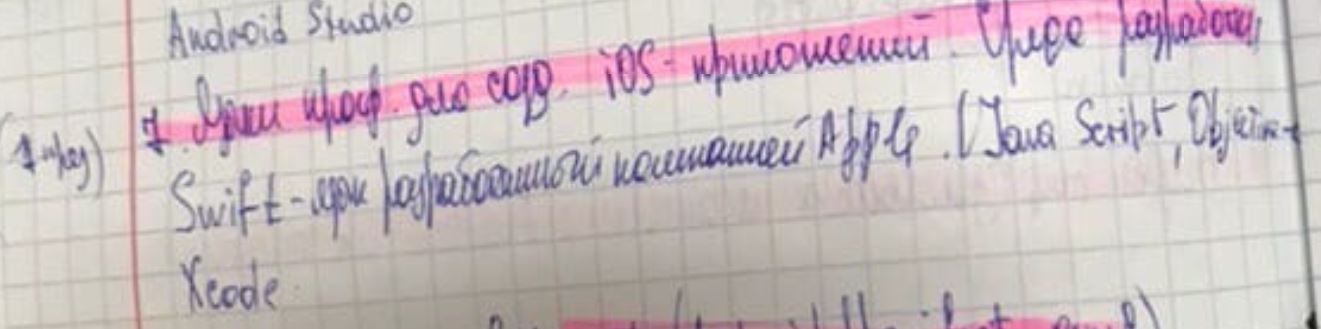 Android Studio
7. Языки прогр. для созд. iOS - приложений. Среда разработки
Swift - язык разработанный компанией Apple. (Java Script, Objective-
Xcode